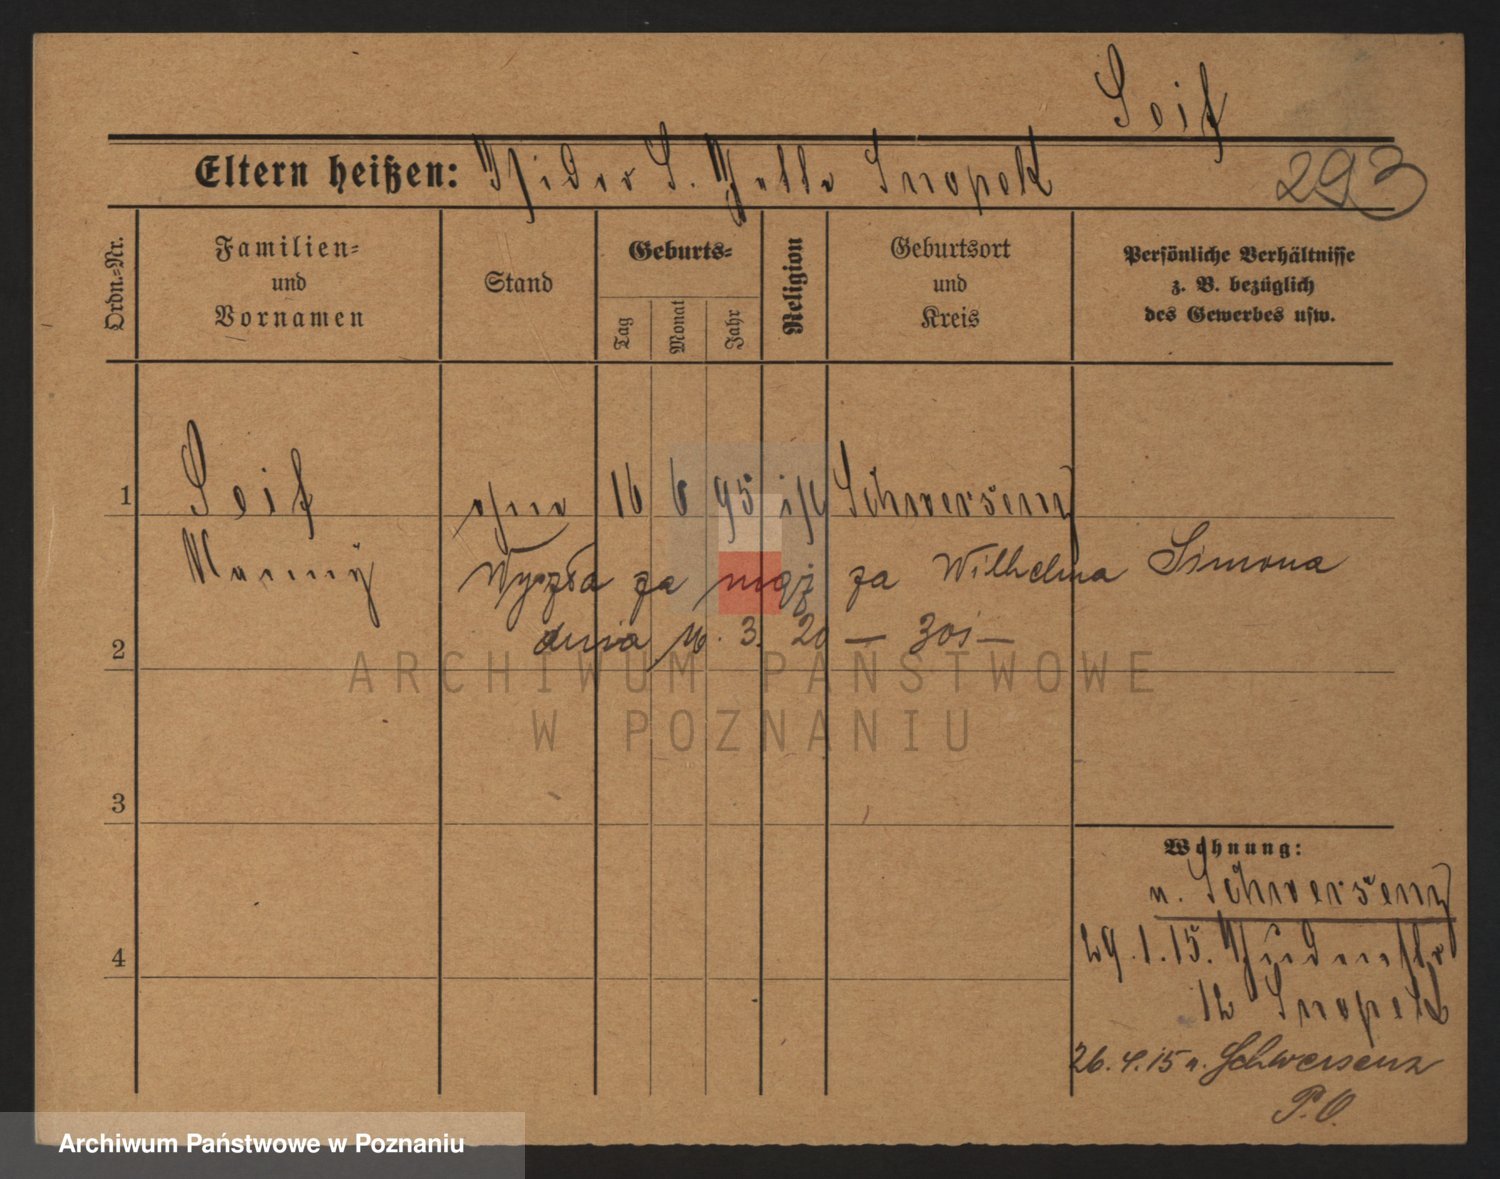 Seif
Eltern heißen: Isidor S. Jette Snopek
293
Ordn.-Nr.
Familien-
und
Vornamen
Stand
Geburts-
Tag
Monat
Jahr
Religion
Geburtsort
und
Kreis
Persönliche Verhältnisse
z. B. bezüglich
des Gewerbes usw.
1
Seif
ohne
16
6
95
isr
Schwersenz
Nanny
Wyszła za mąż za Wilhelma Simona
dnia 16. 3. 20 —
2
3
4
Wohnung:
n. Schwersenz
29.1.15. Judenstr
12 Snopek
26.4.15 n. Schwersenz
P.O.
ARCHIWUM PAŃSTWOWE
W POZNANIU
Archiwum Państwowe w Poznaniu